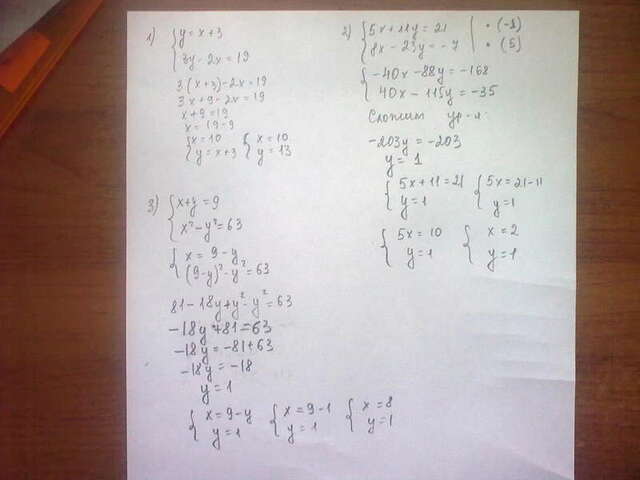 1) { y = x + 3
3y - 2x = 19
3(x+3) - 2x = 19
3x + 9 - 2x = 19
x + 9 = 19
x = 19 - 9
{ x = 10 { x = 10
y = x + 3 y = 13
2) { 5x + 11y = 21 | · (-1)
8x - 23y = -7 | · (5)
{ -40x - 88y = -168
40x - 115y = -35
Сложим ур-я:
-203y = -203
y = 1
{ 5x + 11 = 21 { 5x = 21 - 11
y = 1 y = 1
{ 5x = 10 { x = 2
y = 1 y = 1
3) { x + y = 9
x² - y² = 63
{ x = 9 - y
(9-y)² - y² = 63
81 - 18y + y² - y² = 63
-18y + 81 = 63
-18y = -81 + 63
-18y = -18
y = 1
{ x = 9 - y { x = 9 - 1 { x = 8
y = 1 y = 1 y = 1